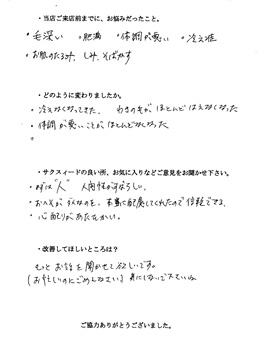 ・当店ご来店前までに、お悩みだったこと。
・毛深い ・肥満 ・体調が悪い ・冷え性
・お肌のたるみ、しみ、そばかす
・どのように変わりましたか。
・冷えなくなってきた、わきの毛がほとんどはえなくなった
・体調が悪いことがほとんどなくなった
・サクスィードの良い所、お気に入りなどご意見をお聞かせ下さい。
・まずは"人" 人間性がすばらしい。
・おへそが なのを、本当に配慮してくれたので信頼できる。
・心配りがあたたかい。
・改善してほしいところは？
もっとお話を聞かせて欲しいです。
(お忙しいのにごめんなさい)
ご協力ありがとうございました。